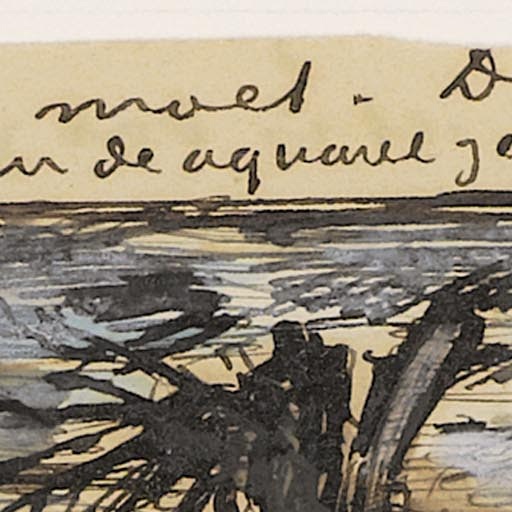 moet. D
de aquarel